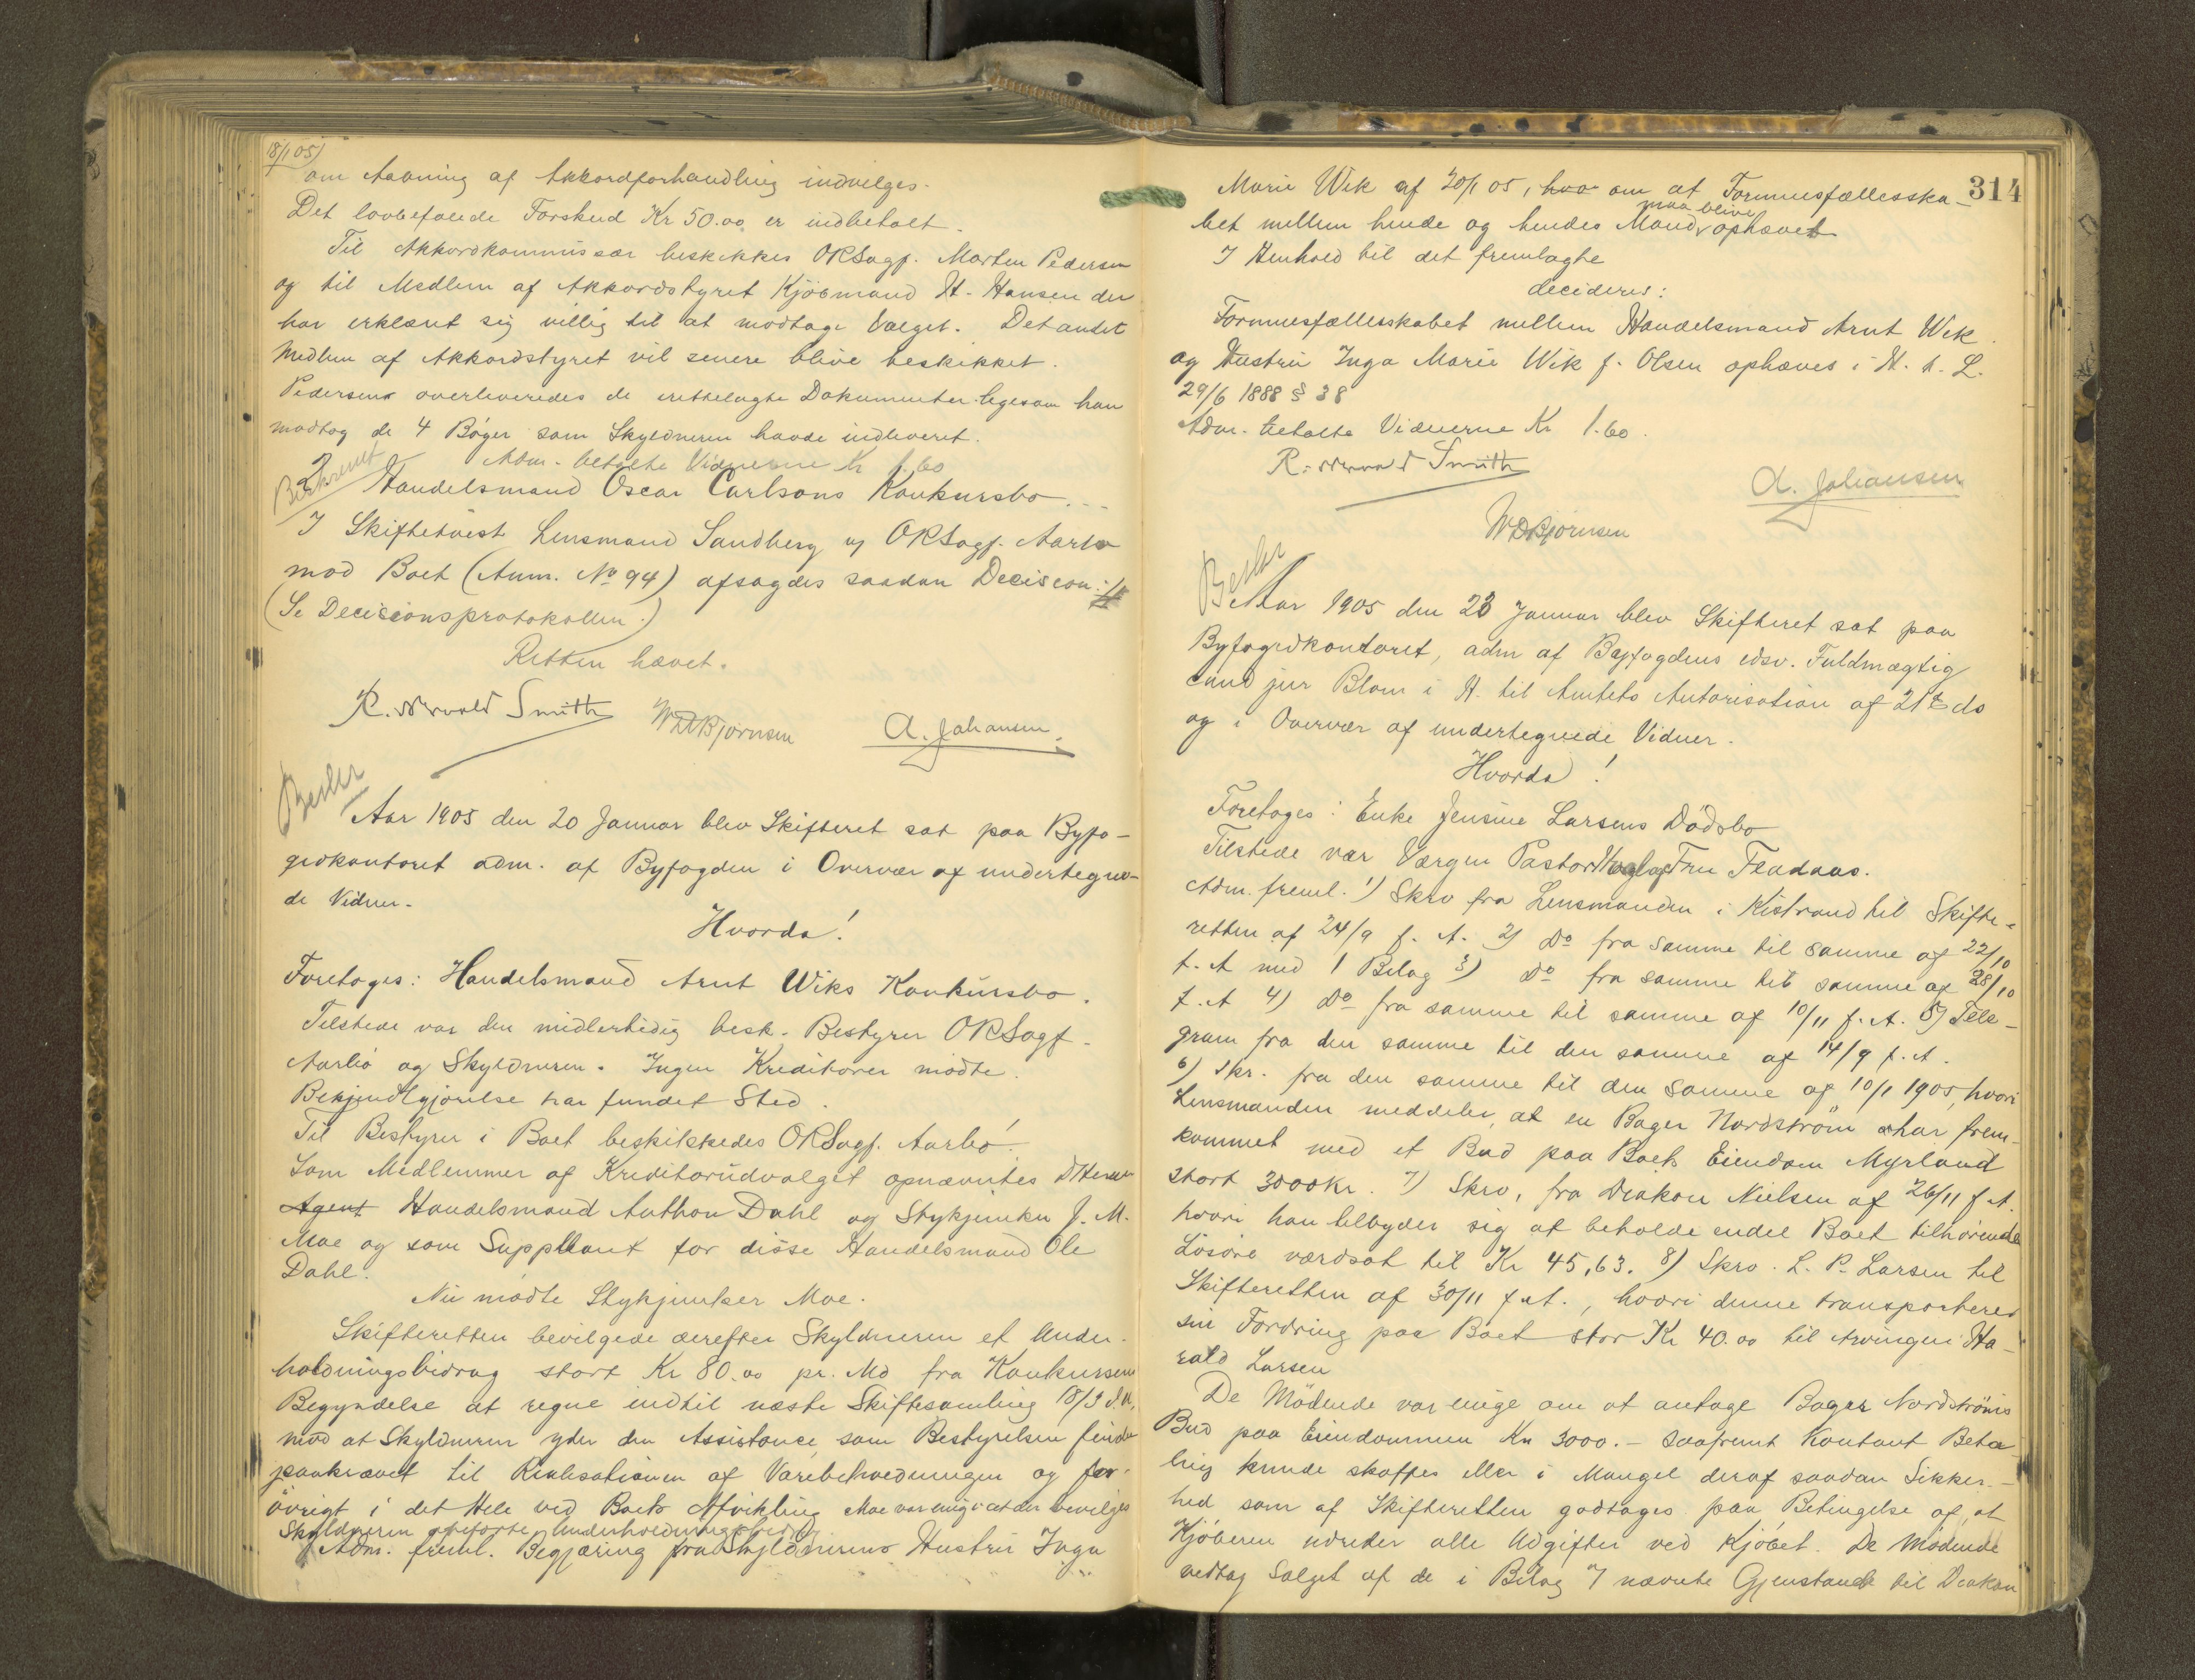 18/1 05)
om Aabning af Akkordforhandling indvilges.
Det lovbefalede Forskud Kr 50.00 er indbetalt.
Til Akkordkommissær beskikkes ORSagf. Morten Pedersen
og til Medlem af Akkordstyret Kjøbmand H. Hansen der
har erklært sig villig til at modtage Valget. Det andet
Medlem af Akkordstyret vil senere blive beskikket.
Pedersen overleveredes de irettelagte Dokumenter ligesom han
modtog de 4 Bøger som Skyldneren havde indleveret.
Adm. betalte Vidnerne Kr 1.60
Beskrevet
2 Handelsmand Oscar Carlsons Konkursbo...
I Skiftetvist Lensmand Sandberg og ORSagf. Aarbo
mod Boet (Anm. No 94) afsagdes saadan Decision:
(Se Decisionsprotokollen.)
Retten hævet.
R. Nervald Smith WDBjørnsen A. Johansen.
Beskr
Aar 1905 den 20 Januar blev Skifteret sat paa Byfo-
gedkontoret adm. af Byfogden i Overvær af undertegne-
de Vidner.
Hvorda!
Foretoges: Handelsmand Arnt Wiks Konkursbo.
Tilstede var den midlertidig besk. Bestyrer ORSagf.
Aarbo og Skyldneren. Ingen Kreditorer mødte.
Bekjendtgjørelse har fundet Sted.
Til Bestyrer i Boet beskikkedes ORSagf. Aarbo.
Som Medlemmer af Kreditorudvalget opnævntes DHerrer
Agent Handelsmand Anthon Dahl og Stykjunker J. M.
Moe og som Suppleant for disse Handelsmand Ole
Dahl.
Nu mødte Stykjunker Moe.
Skifteretten bevilgede derefter Skyldneren et Under-
holdningsbidrag stort Kr 80.00 pr. Md fra Konkursens
Begyndelse at regne indtil næste Skiftesamling 18/3 d.A.
mod at Skyldneren yder den Assistance som Bestyrelsen finder
paakrævet til Realisationen af Varebeholdningen og for-
øvrigt i det Hele ved Boets Afvikling Moe var enig i at der bevilges
Skyldneren anførte Underholdningsbidrag
Adm. freml. Begjæring fra Skyldnerens Hustru Inga
314
Marie Wik af 20/1 05, hvor om at Formuesfællesska-
maa blive
bet mellem hende og hendes Mand ophævet
I Henhold til det fremlagte
decideres:
Formuesfællesskabet mellem Handelsmand Arnt Wik
og Hustru Inga Marie Wik f. Olsen ophæves i H. t. L.
29/6 1888 § 38
Adm. betalte Vidnerne Kr 1.60.
R. Nervald Smith
A. Johansen
WDBjørnsen
Beskr
Aar 1905 den 23 Januar blev Skifteret sat paa
Byfogedkontoret, adm af Byfogdens edsv. Fuldmægtig
cand jur Blom i H. til Amtets Autorisation af 21de ds
og i Overvær af undertegnede Vidner.
Hvorda!
Foretoges: Enke Jensine Larsens Dødsbo
Tilstede var Værgen Pastor og Fru Fladaas.
Adm. freml. 1) Skrv fra Lensmanden i Kistrand til Skifte-
retten af 24/9 f. A. 2) Do fra samme til samme af 22/10
f. A med 1 Bilag 3) Do fra samme til samme af 28/10
f. A 4) Do fra samme til samme af 10/11 f. A. 5) Tele-
gram fra den samme til den samme af 14/9 f. A.
6) Skr. fra den samme til den samme af 10/1 1905, hvori
Lensmanden meddeler, at en Bager Nordström har frem-
kommet med et Bud paa Boets Eiendom Myrland
stort 3000kr. 7) Skrv, fra Diakon Nielsen af 26/11 f A.
hvori han tilbyder sig at beholde endel Boet tilhørende
Løsøre værdsat til Kr 45,63. 8) Skrv. L. P. Larsen til
Skifteretten af 30/11 f A., hvori denne transporterer
sin Fordring paa Boet stor Kr 40.00 til Arvingen Ha-
rald Larsen
De Mødende var enige om at antage Bager Nordströms
Bud paa Eiendommen Kr 3000.- saafremt Kontant Beta-
ling kunde skaffes eller i Mangel deraf saadan Sikker-
hed som af Skifteretten godtages paa Betingelse af, at
Kjøberen udreder alle Udgifter ved Kjøbet. De Mødende
vedtog Salget af de i Bilag 7 nævnte Gjenstande til Diakon